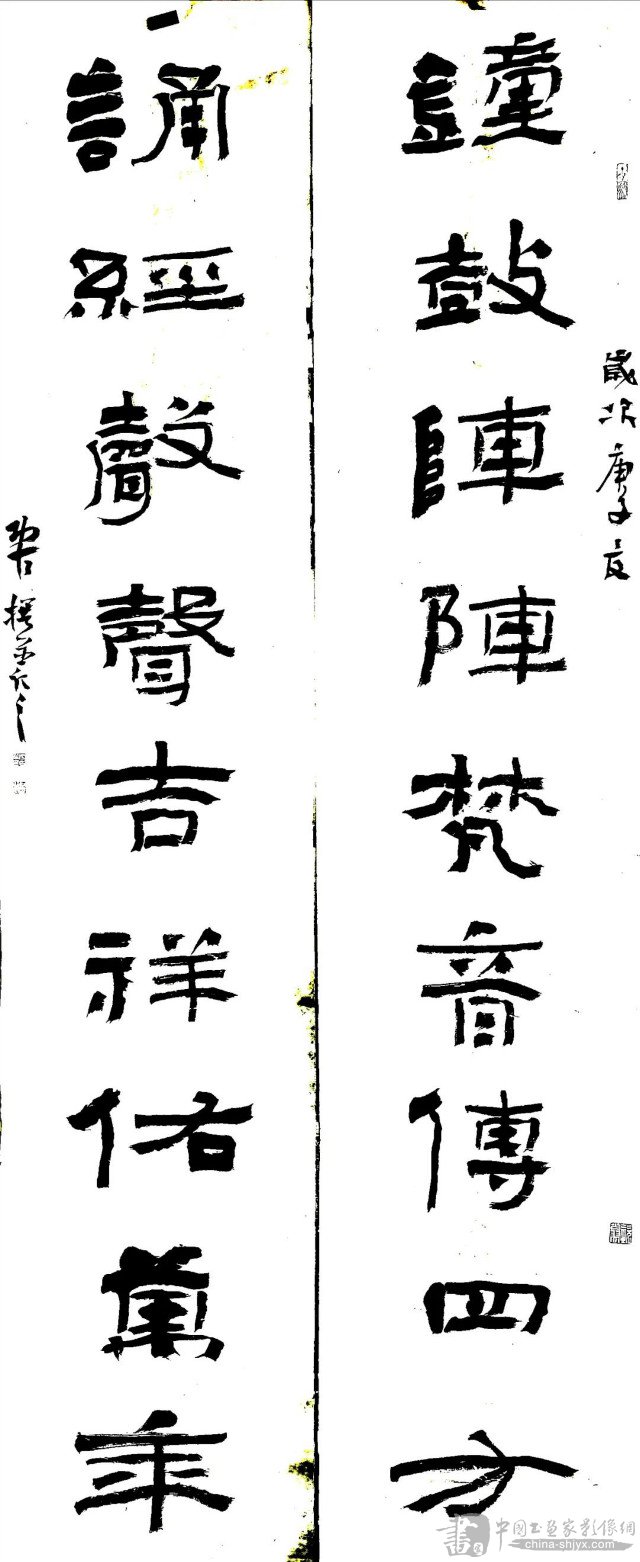 歲次庚子夏
鐘鼓陣陣梵音傳四方
誦經聲聲吉祥佑萬年
撰並書之
中國书画家影像網
china-shjyx.com